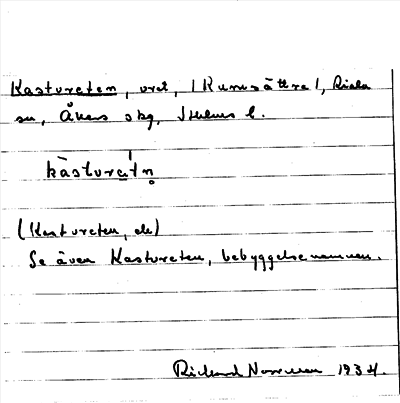 Kastvreten, vret, (Kumsättra), Riala
sn, Åkers skg, Sthlms l.
kàstvre̤̍tn̥
(Kastvreten, de)
Se även Kastvreten, bebyggelsenamnen.
Rickard Norrman 1934.